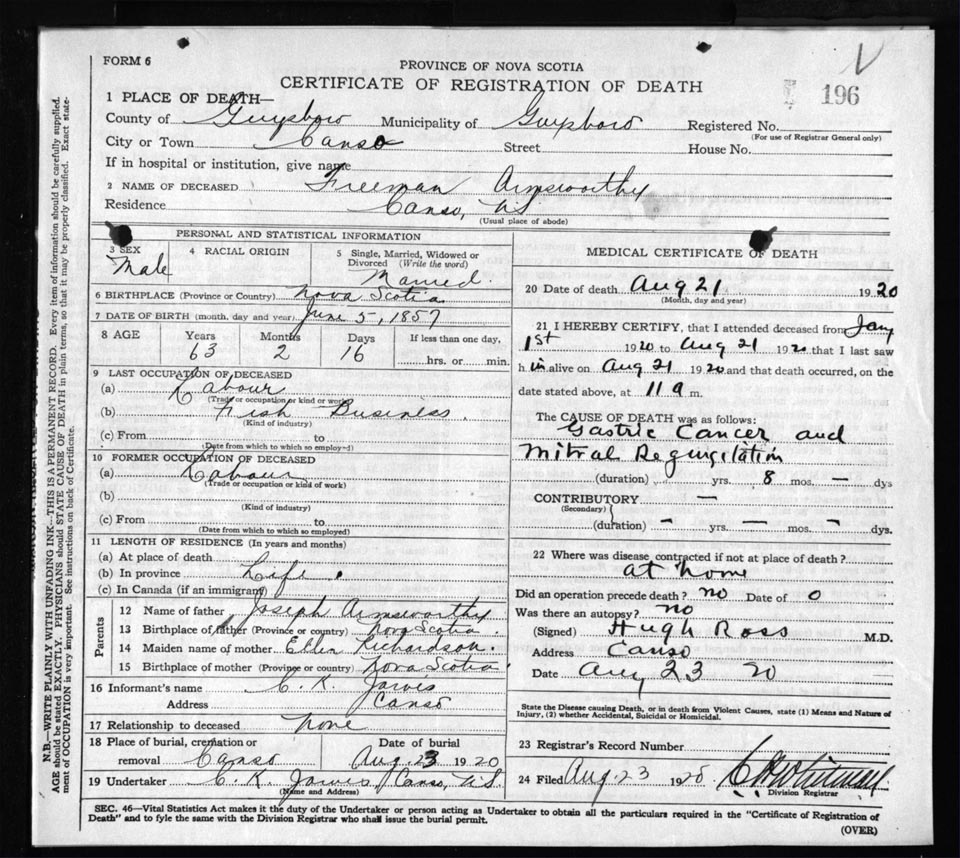 FORM 6
PROVINCE OF NOVA SCOTIA
CERTIFICATE OF REGISTRATION OF DEATH
196
1 PLACE OF DEATH—
County of Guysboro Municipality of Guysboro Registered No.
(For use of Registrar General only)
City or Town Canso Street House No.
If in hospital or institution, give name
2 NAME OF DECEASED Freeman Armsworthy
Residence Canso, N.S.
(Usual place of abode)
PERSONAL AND STATISTICAL INFORMATION
3 SEX Male
4 RACIAL ORIGIN
5 Single, Married, Widowed or Divorced (Write the word) Married.
6 BIRTHPLACE (Province or Country) Nova Scotia
7 DATE OF BIRTH (month, day and year) June 5, 1857
8 AGE Years Months Days If less than one day,
63 2 16 hrs. or min.
9 LAST OCCUPATION OF DECEASED
(a) Labour
(Trade or occupation or kind or work)
(b) Fish Business.
(Kind of industry)
(c) From to
(Date from which to which so employed)
10 FORMER OCCUPATION OF DECEASED
(a) Labour
(Trade or occupation or kind of work)
(b)
(Kind of industry)
(c) From to
(Date from which to which so employed)
11 LENGTH OF RESIDENCE (In years and months)
(a) At place of death
(b) In province Life.
(c) In Canada (if an immigrant)
Parents
12 Name of father Joseph Armsworthy
13 Birthplace of father (Province or country) Nova Scotia.
14 Maiden name of mother Ellen Richardson.
15 Birthplace of mother (Province or country) Nova Scotia
16 Informant's name C. K. Jarvis
Address Canso
17 Relationship to deceased None
18 Place of burial, cremation or removal Canso
Date of burial Aug. 23 1920
19 Undertaker C. K. Jarvis Canso, N.S.
(Name and Address)
MEDICAL CERTIFICATE OF DEATH
20 Date of death Aug 21 1920
(Month, day and year)
21 I HEREBY CERTIFY, that I attended deceased from Jany
1st 1920 to Aug 21 1920 that I last saw
him alive on Aug 21 1920 and that death occurred, on the
date stated above, at 11 a m.
The CAUSE OF DEATH was as follows:
Gastric Cancer and
Mitral Regurgitation
(duration) yrs. 8 mos. — dys
CONTRIBUTORY —
(Secondary)
(duration) — yrs. — mos. — dys.
22 Where was disease contracted if not at place of death?
at home
Did an operation precede death? no Date of 0
Was there an autopsy? no
(Signed) Hugh Ross M.D.
Address Canso
Date Aug 23 20
State the Disease causing Death, or in death from Violent Causes, state (1) Means and Nature of
Injury, (2) whether Accidental, Suicidal or Homicidal.
23 Registrar's Record Number
24 Filed Aug. 23 1920
Division Registrar
SEC. 46—Vital Statistics Act makes it the duty of the Undertaker or person acting as Undertaker to obtain all the particulars required in the "Certificate of Registration of
Death" and to fyle the same with the Division Registrar who shall issue the burial permit.
(OVER)
N.B.—WRITE PLAINLY WITH UNFADING INK—THIS IS A PERMANENT RECORD. Every item of information should be carefully supplied.
AGE should be stated EXACTLY. PHYSICIANS should STATE CAUSE OF DEATH in plain terms, so that it may be properly classified. Exact state-
ment of OCCUPATION is very important. See instructions on back of Certificate.